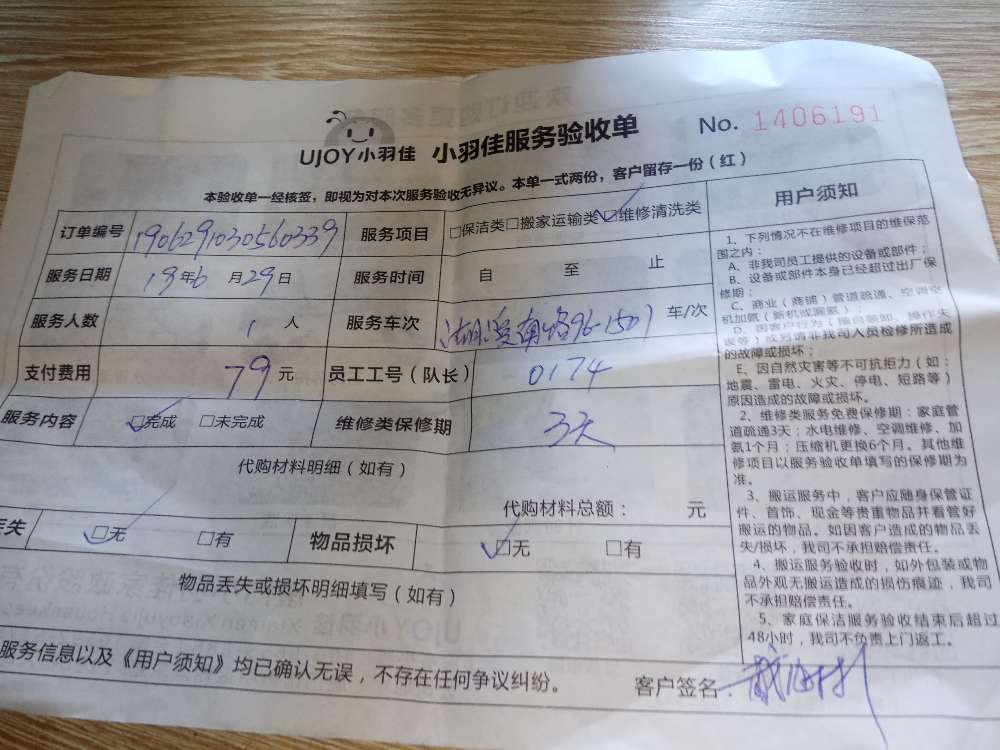 UJOY小羽佳 小羽佳服务验收单 No. 1406191
本验收单一经核签，即视为对本次服务验收无异议。本单一式两份，客户留存一份（红）
订单编号 1906291030560339 服务项目 □保洁类□搬家运输类☑维修清洗类
服务日期 19年6月29日 服务时间 自 至 止
服务人数 1人 服务车次 湖滨南路96-1501 车/次
支付费用 79元 员工工号（队长） 0174
服务内容 ☑完成 □未完成 维修类保修期 3天
代购材料明细（如有）
代购材料总额： 元
丢失 ☑无 □有 物品损坏 ☑无 □有
物品丢失或损坏明细填写（如有）
服务信息以及《用户须知》均已确认无误，不存在任何争议纠纷。
客户签名：
用户须知
1、下列情况不在维修项目的维保范
围之内：
A、非我司员工提供的设备或部件；
B、设备或部件本身已经超过出厂保
修期；
C、商业（商铺）管道疏通、空调空
机加氨（新机或漏氨）；
D、因客户行为（擅自装卸、操作失
误等）或另请非我司人员检修所造成
的故障或损坏；
E、因自然灾害等不可抗拒力（如：
地震、雷电、火灾、停电、短路等）
原因造成的故障或损坏。
2、维修类服务免费保修期：家庭管
道疏通3天；水电维修、空调维修、加
氨1个月；压缩机更换6个月。其他维
修项目以服务验收单填写的保修期为
准。
3、搬运服务中，客户应随身保管证
件、首饰、现金等贵重物品并看管好
搬运的物品。如因客户造成的物品丢
失/损坏，我司不承担赔偿责任。
4、搬运服务验收时，如外包装或物
品外观无搬运造成的损伤痕迹，我司
不承担赔偿责任。
5、家庭保洁服务验收结束后超过
48小时，我司不负责上门返工。